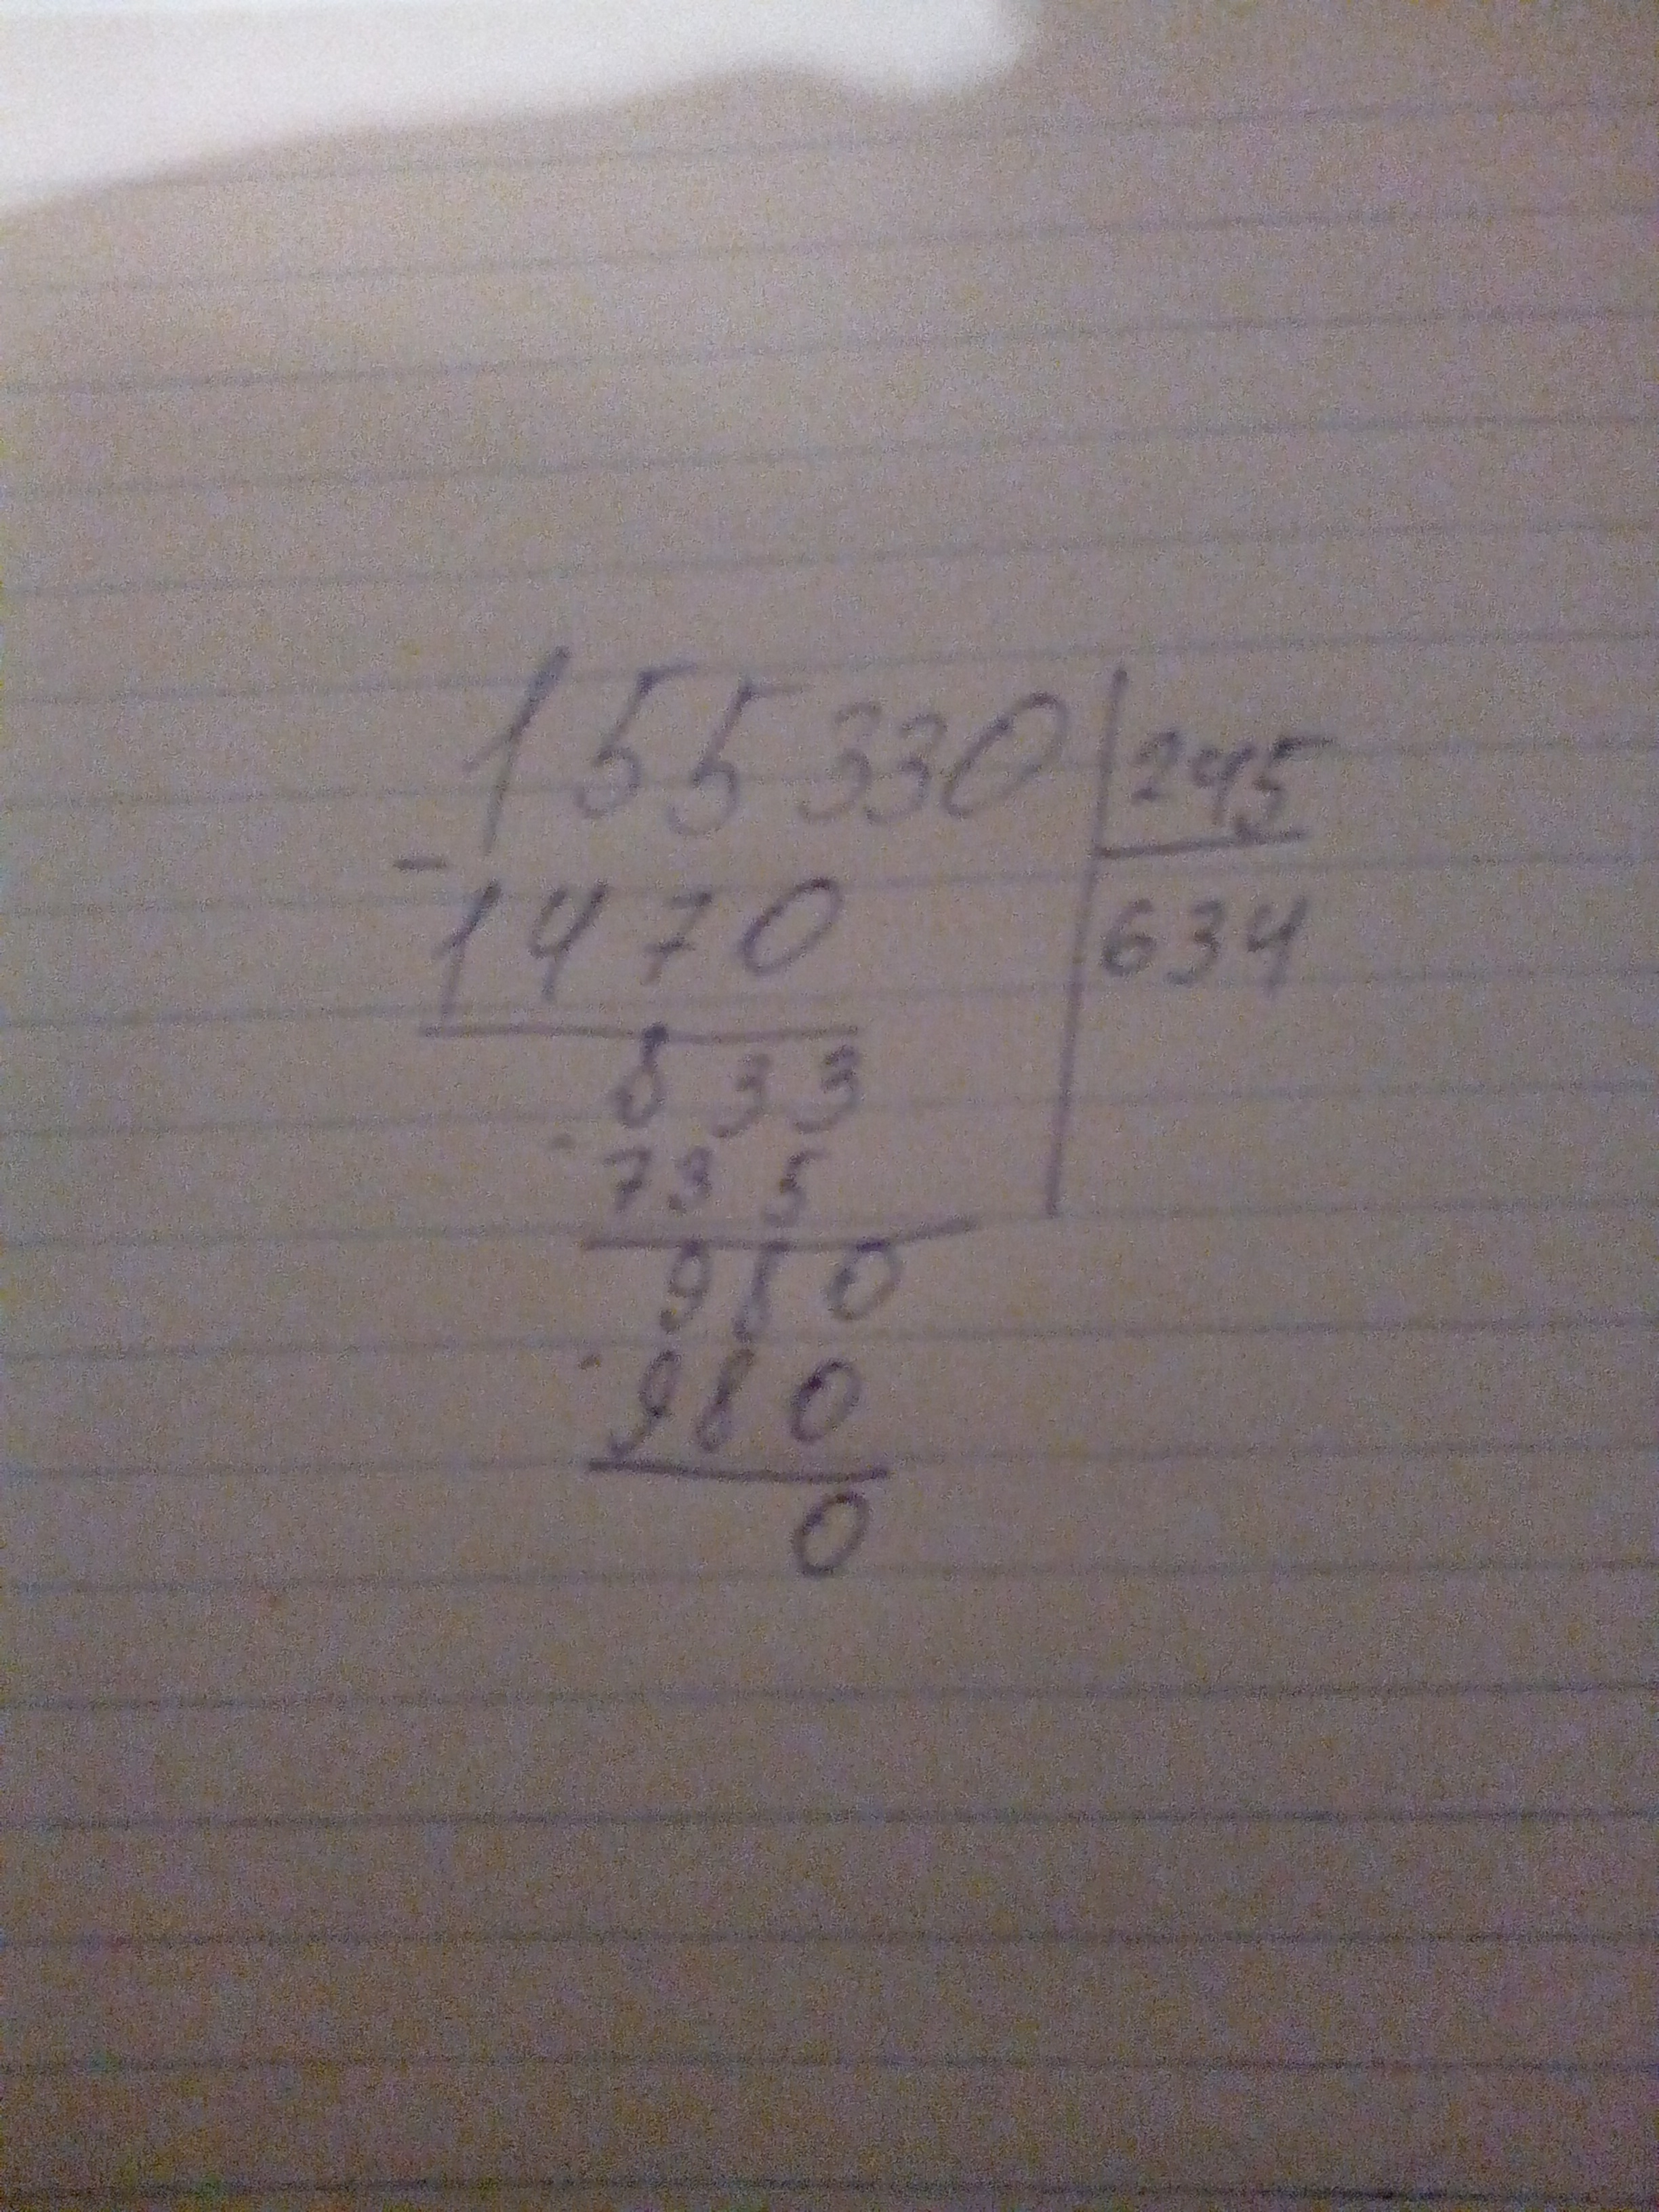 155330 245
- 1470 634
833
- 735
980
- 980
0